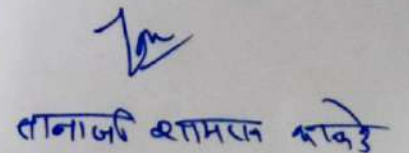 तानाजी शामराव काकडे